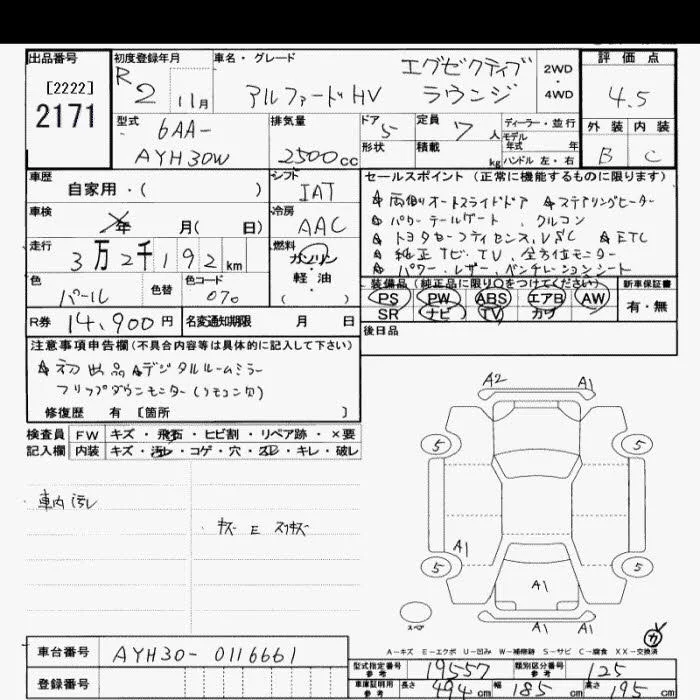 出品番号
[2222]
2171
初度登録年月
R2 11月
車名・グレード
アルファードHV エグゼクティブラウンジ
2WD・4WD
評価点
4.5
外装 内装
B C
型式
6AA-
AYH30W
排気量
2500cc
ドア 5
形状
定員 7人
積載 kg
ディーラー・並行
モデル年式 年
ハンドル 左・右
車歴
自家用・( )
シフト
IAT
車検
年 月( 日)
冷房
AAC
走行
3万2千192km
燃料
ガソリン・軽油
( )
色
パール
色替
色コード
070
R券 14,900円
名変通知期限 月 日
セールスポイント(正常に機能するものに限ります)
両側オートスライドドア ステアリングヒーター
パワーテールゲート、クルコン
トヨタセーフティセンス、VSC ETC
純正ナビ・TV、全方位モニター
パワーレザーベンチレーションシート
装備品(純正品に限り○をつけてください)
PS PW ABS エアB AW
SR ナビ TV カワ
新車保証書
有・無
後日品
注意事項申告欄(不具合内容等は具体的に記入して下さい)
初出品 デジタルルームミラー
フリップダウンモニター(リモコン欠)
修復歴 有 [箇所 ]
検査員 FW キズ・飛石・ヒビ割・リペア跡・×要
記入欄 内装 キズ・汚レ・コゲ・穴・スレ・キレ・破レ
車内汚レ
キズ E スリキズ
A2 A1
5 5
A1
5 5
A1
A1 A1
スペア
カ
A-キズ E-エクボ U-凹み W-補修跡 S-サビ C-腐食 XX-交換済
車台番号 AYH30-0116661
登録番号
型式指定番号 参考 19557
類別区分番号 参考 125
車庫証明用 参考 長さ 494cm 幅 185cm 高さ 195cm